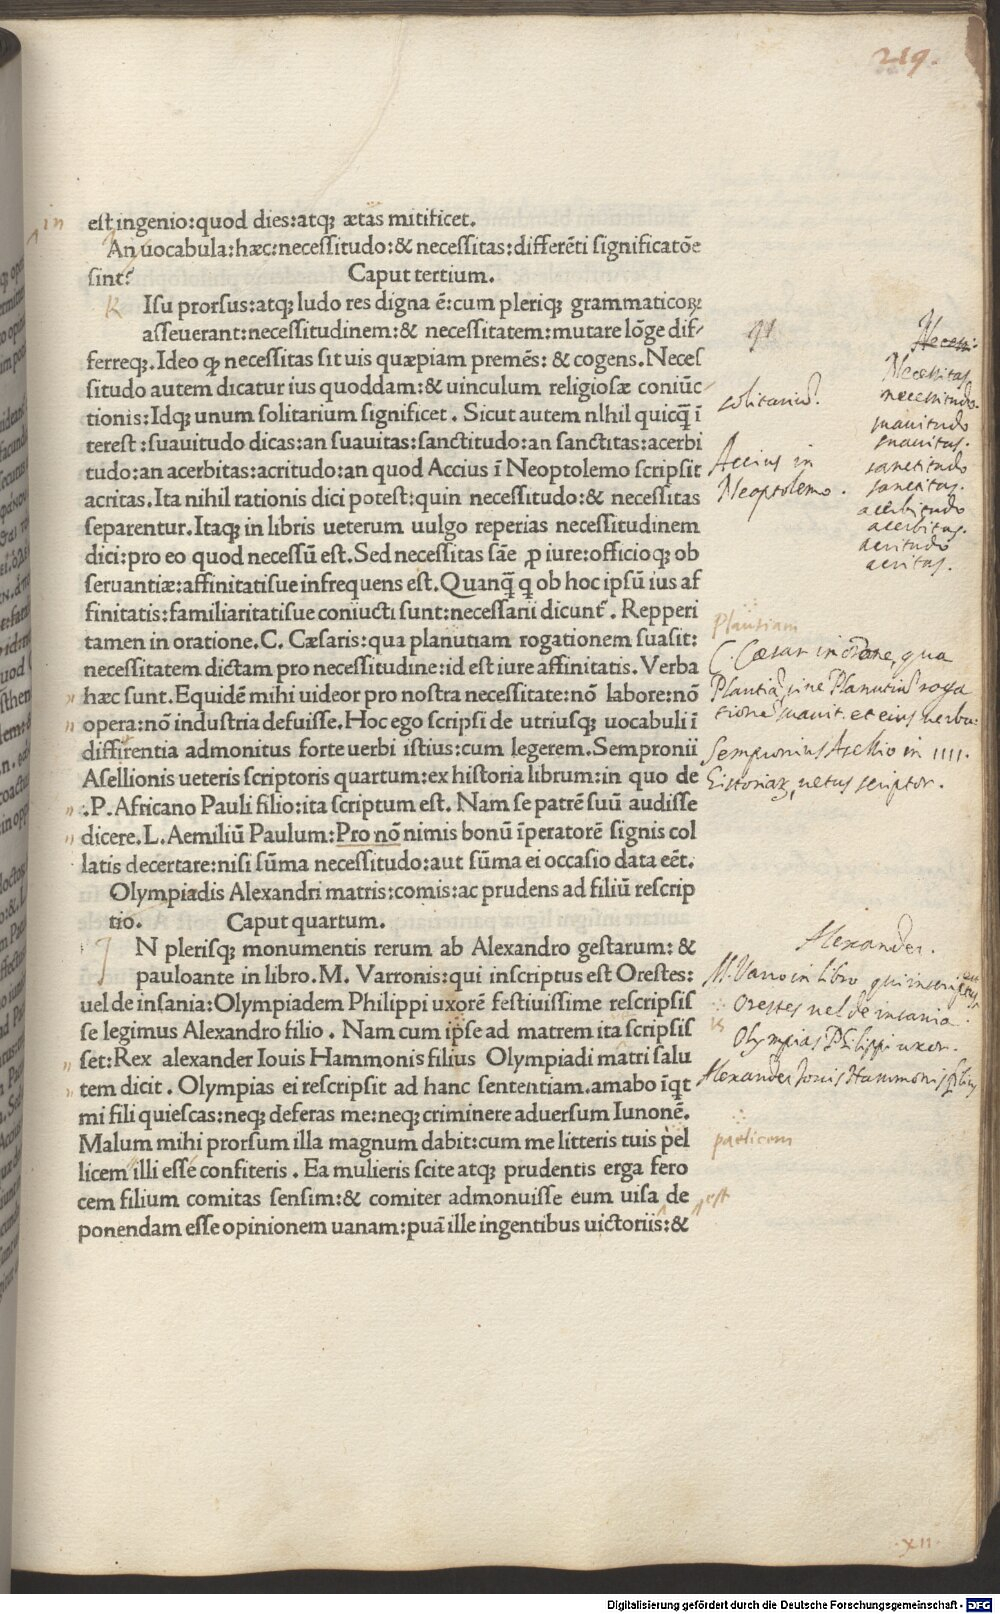 219.
in
est ingenio:quod dies:atqꝫ ætas mitificet.
An uocabula:hæc:necessitudo:& necessitas:differēti significatōe
sint?
Caput tertium.
K
Isu prorsus:atqꝫ ludo res digna ē:cum pleriqꝫ grammaticoꝝ
asseuerant:necessitudinem:& necessitatem:mutare lōge dif-
ferreqꝫ.Ideo ꝙ necessitas sit uis quæpiam premēs: & cogens.Neces
situdo autem dicatur ius quoddam:& uinculum religiosæ coniūc
tionis:Idqꝫ unum solitarium significet. Sicut autem nlhil quicꝗ̄ ī
terest:suauitudo dicas:an suauitas:sanctitudo:an sanctitas:acerbi
tudo:an acerbitas:acritudo:an quod Accius ī Neoptolemo scripsit
acritas.Ita nihil rationis dici potest:quin necessitudo:& necessitas
separentur.Itaqꝫ in libris ueterum uulgo reperias necessitudinem
dici:pro eo quod necessū est.Sed necessitas sāe ꝓ iure:officioqꝫ ob
seruantiæ:affinitatisue infrequens est.Quanꝗ̄ q ob hoc ipsū ius af
finitatis:familiaritatisue coniucti sunt:necessarii dicunt᷑.Repperi
tamen in oratione.C.Cæsaris:qua planutiam rogationem suasit:
necessitatem dictam pro necessitudine:id est iure affinitatis.Verba
hæc sunt.Equidē mihi uideor pro nostra necessitate:nō labore:nō
opera:nō industria defuisse.Hoc ego scripsi de utriusqꝫ uocabuli ī
diffirentia admonitus forte uerbi istius:cum legerem.Sempronii
Asellionis ueteris scriptoris quartum:ex historia librum:in quo de
.P.Africano Pauli filio:ita scriptum est.Nam se patrē suū audisse
dicere.L.Aemiliū Paulum:Pro nō nimis bonū īperatorē signis col
latis decertare:nisi sūma necessitudo:aut sūma ei occasio data eēt.
Olympiadis Alexandri matris:comis:ac prudens ad filiū rescrip
tio.
Caput quartum.
J
N plerisqꝫ monumentis rerum ab Alexandro gestarum:&
pauloante in libro.M.Varronis:qui inscriptus est Orestes:
uel de insania:Olympiadem Philippi uxorē festiuissime rescripsis
se legimus Alexandro filio. Nam cum ipse ad matrem ita scripsis
set:Rex alexander Iouis Hammonis filius Olympiadi matri salu
tem dicit. Olympias ei rescripsit ad hanc sententiam.amabo īqt
mi fili quiescas:neqꝫ deferas me:neqꝫ criminere aduersum Iunonē.
Malum mihi prorsum illa magnum dabit:cum me litteris tuis pel
licem illi esse confiteris. Ea mulieris scite atqꝫ prudentis erga fero
cem filium comitas sensim:& comiter admonuisse eum uisa de
ponendam esse opinionem uanam:puā ille ingentibus uictoriis:&
Necessi:
Necessitas
necessitudo.
suauitudo
suauitas.
sanctitudo
sanctitas.
acerbitudo
acerbitas.
acritudo
acritas.
solitariū.
Accius in
Neoptolemo.
Plautiam
C. Cæsar in orōne, qua
Plautiā, siue Planutiā roga
tionē suauit. et eius uerba.
Sempronius Asellio in IIII.
historiaꝝ, uetus scriptor.
Alexander.
M. Varro in libro qui inscriptus
Orestes uel de insania.
is
Olympias Philippi uxor.
Alexander Iouis Hammonis filius
paelicem
est
.XII.
Digitalisierung gefördert durch die Deutsche Forschungsgemeinschaft - DFG